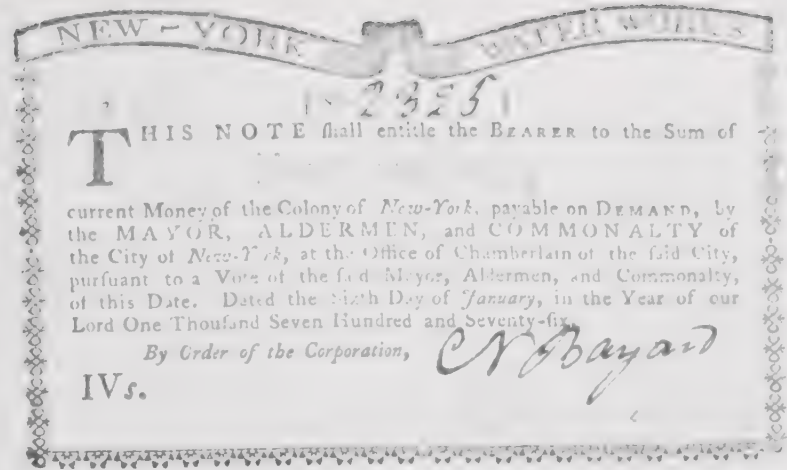 NEW-YORK WATER WORKS
No 2325
THIS NOTE ſhall entitle the BEARER to the Sum of
current Money of the Colony of New-York, payable on DEMAND, by
the MAYOR, ALDERMEN, and COMMONALTY of
the City of New-York, at the Office of Chamberlain of the ſaid City,
purſuant to a Vote of the ſaid Mayor, Aldermen, and Commonalty,
of this Date. Dated the Sixth Day of January, in the Year of our
Lord One Thouſand Seven Hundred and Seventy-ſix.
By Order of the Corporation,
N Bayard
IVs.